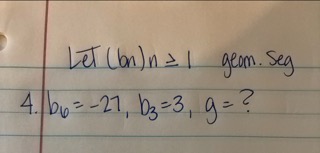 Let (bn)n ≥ 1 geom. seg
4. b₆ = -27, b₃ = 3, g = ?